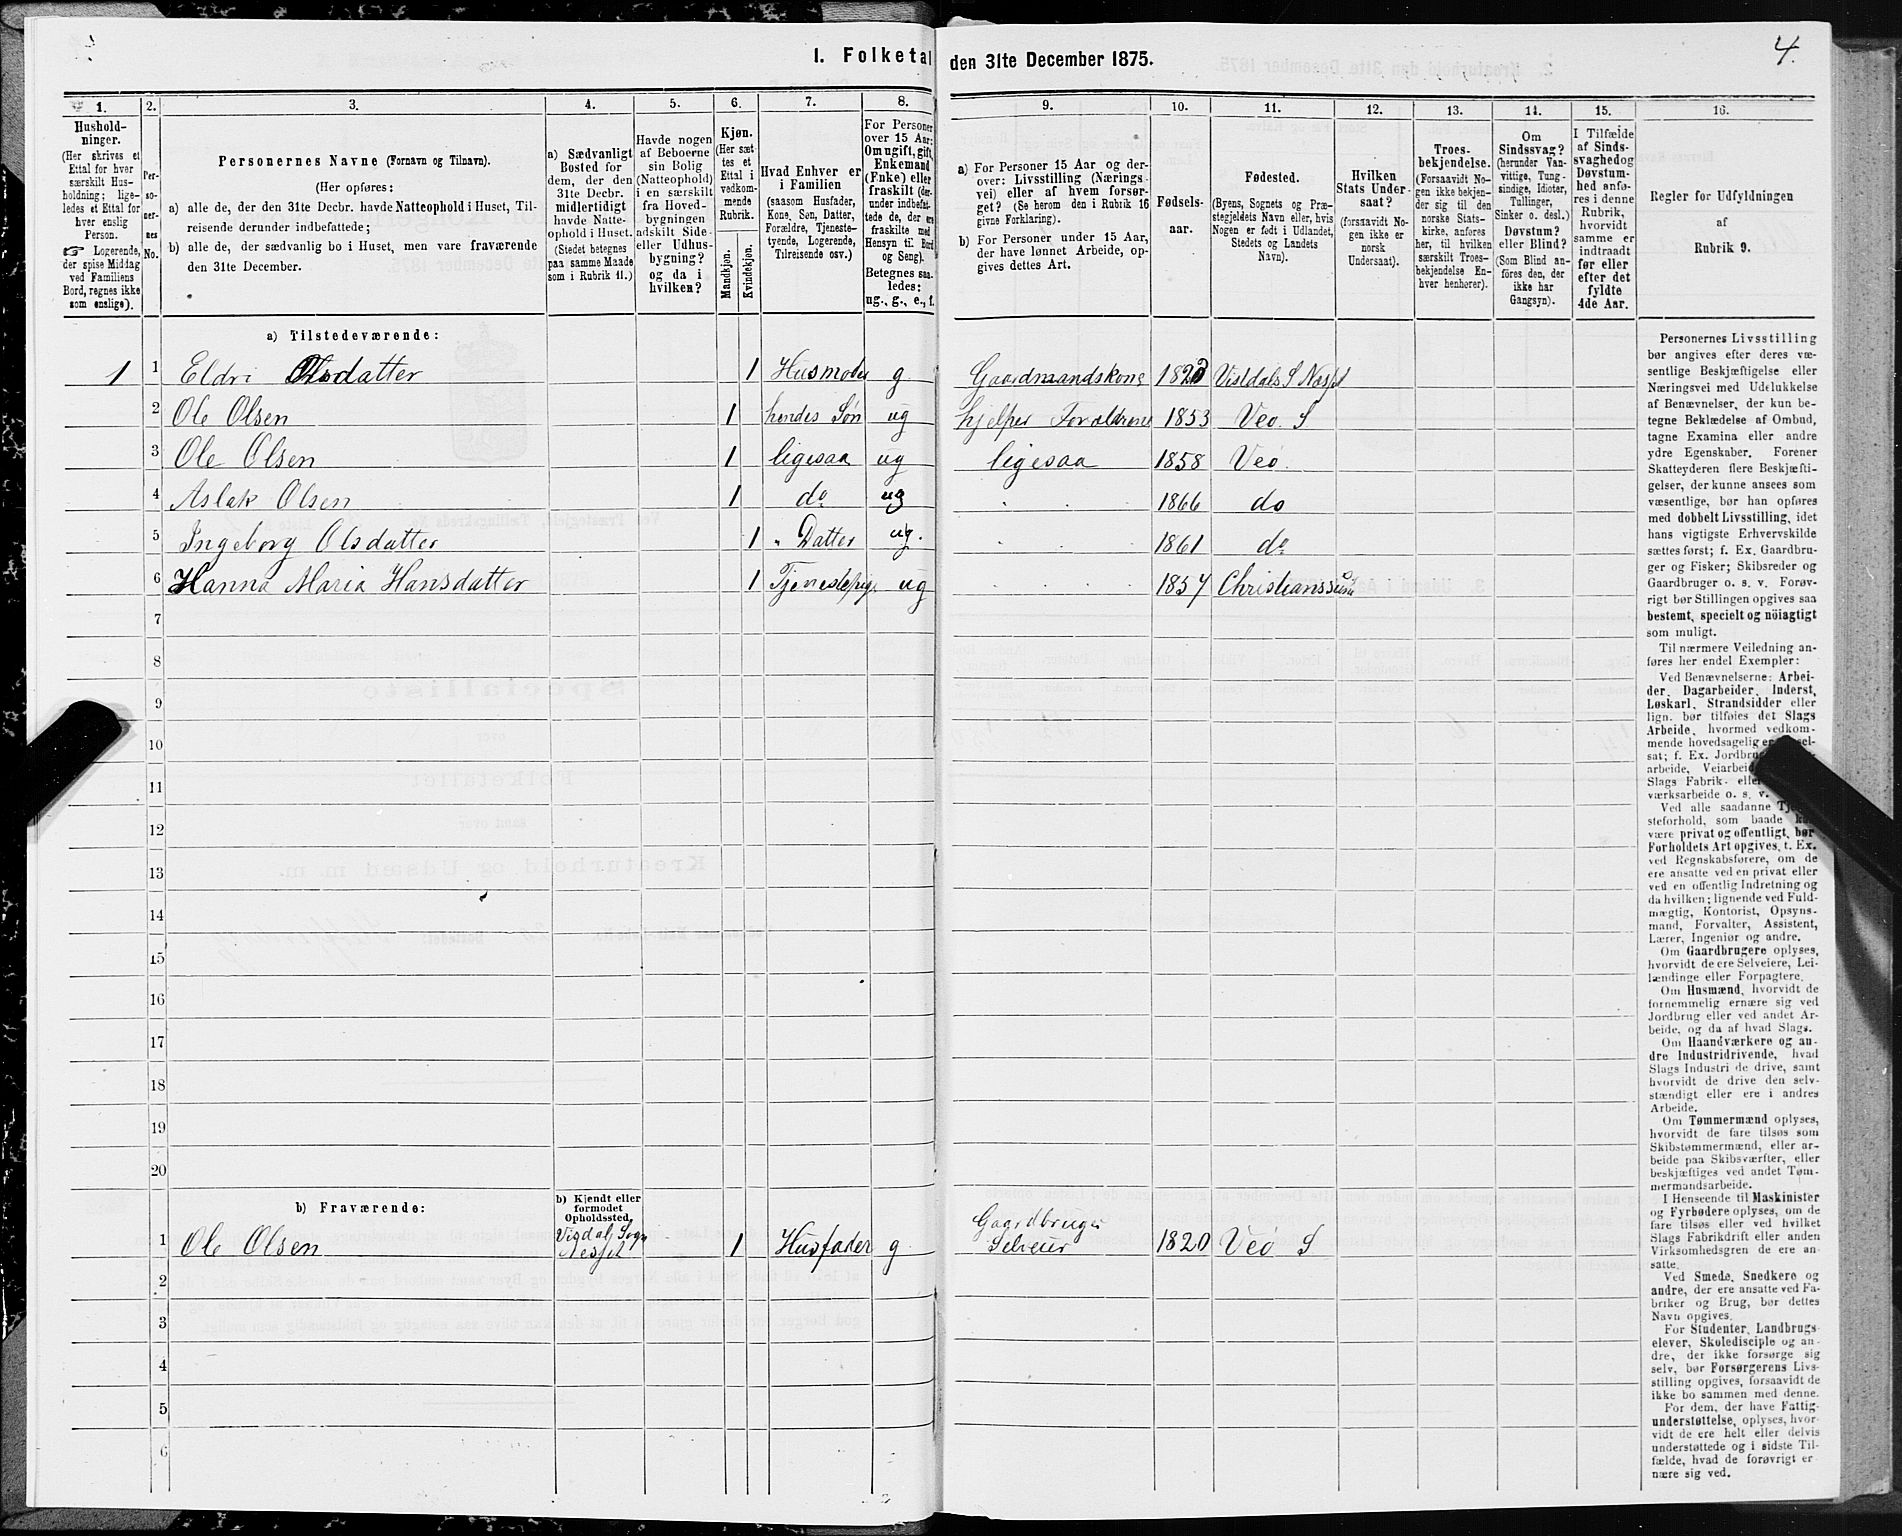 I. Folketal den 31te December 1875.
4.
1.
Hushold-
ninger.
(Her skrives et
Ettal for hver
særskilt Hus-
holdning; lige-
ledes et Ettal for
hver enslig
Person.
☞ Logerende,
der spise Middag
ved Familiens
Bord, regnes ikke
som enslige).
2.
Per-
so-
ner-
nes
No.
3.
Personernes Navne (Fornavn og Tilnavn).
(Her opføres:
a) alle de, der den 31te Decbr. havde Natteophold i Huset, Til-
reisende derunder indbefattede;
b) alle de, der sædvanlig bo i Huset, men vare fraværende
den 31te December.
4.
a) Sædvanligt
Bosted for
dem, der den
31te Decbr.
midlertidigt
havde Natte-
ophold i Huset.
(Stedet betegnes
paa samme Maade
som i Rubrik 11.)
5.
Havde nogen
af Beboerne
sin Bolig
(Natteophold)
i en særskilt
fra Hoved-
bygningen
adskilt Side-
eller Udhus-
bygning?
og da i
hvilken?
6.
Kjøn.
(Her sæt-
tes et
Ettal i
vedkom-
mende
Rubrik.
Mandkjøn.
Kvindekjøn.
7.
Hvad Enhver er
i Familien
(saasom Husfader,
Kone, Søn, Datter,
Forældre, Tjeneste-
tyende, Logerende,
Tilreisende osv.)
8.
For Personer
over 15 Aar:
Om ugift, gift,
Enkemand
(Enke) eller
fraskilt (der-
under indbefat-
tede de, der ere
fraskilte med
Hensyn til Bord
og Seng).
Betegnes saa-
ledes:
ug., g., e., f.
9.
a) For Personer 15 Aar og der-
over: Livsstilling (Nærings-
vei) eller af hvem forsør-
get? (Se herom den i Rubrik 16
givne Forklaring).
b) For Personer under 15 Aar,
der have lønnet Arbeide, op-
gives dettes Art.
10.
Fødsels-
aar.
11.
Fødested.
(Byens, Sognets og Præ-
stegjeldets Navn eller, hvis
Nogen er født i Udlandet,
Stedets og Landets
Navn).
12.
Hvilken
Stats Under-
saat?
(forsaavidt No-
gen ikke er
norsk
Undersaat).
13.
Troes-
bekjendelse.
(Forsaavidt No-
gen ikke bekjen-
der sig til den
norske Stats-
kirke, anføres
her, til hvilken
særskilt Troes-
bekjendelse En-
hver henhører).
14.
Om
Sindssvag?
(herunder Van-
vittige, Tung-
sindige, Idioter,
Tullinger,
Sinker o. desl.)
Døvstum?
eller Blind?
(Som Blind an-
føres den, der
ikke har
Gangsyn).
15.
I Tilfælde
af Sinds-
svaghed og
Døvstum-
hed anfø-
res i denne
Rubrik,
hvorvidt
samme er
indtraadt
før eller
efter det
fyldte
4de Aar.
16.
Regler for Udfyldningen
af
Rubrik 9.
a) Tilstedeværende:
1 1 Eldri Olsdatter 1 Husmoder g Gaardmandskone 1820 Visldals S Næsset
2 Ole Olsen 1 hendes Søn ug hjelper Forældrene 1853 Veø S
3 Ole Olsen 1 ligesaa ug ligesaa 1858 Veø.
4 Aslak Olsen 1 do ug 1866 do
5 Ingeborg Olsdatter 1 " Datter ug. 1861 do
6 Hanna Maria Hansdatter 1 Tjenestepige ug 1857 Christianssund
7
8
9
10
11
12
13
14
15
16
17
18
19
20
b) Fraværende:
b) Kjendt eller
formodet
Opholdssted.
1 Ole Olsen Visdals Sogn
Næsset 1 Husfader g Gaardbruger
Selveier 1820 Veø S
2
3
4
5
6
Personernes Livsstilling
bør angives efter deres væ-
sentlige Beskjæftigelse eller
Næringsvei med Udelukkelse
af Benævnelser, der kun be-
tegne Beklædelse af Ombud,
tagne Examina eller andre
ydre Egenskaber. Forener
Skatteyderen flere Beskjæfti-
gelser, der kunne ansees som
væsentlige, bør han opføres
med dobbelt Livsstilling, idet
hans vigtigste Erhvervskilde
sættes først; f. Ex. Gaardbru-
ger og Fisker; Skibsreder og
Gaardbruger o. s. v. Forøv-
rigt bør Stillingen opgives saa
bestemt, specielt og nöiagtigt
som muligt.
Til nærmere Veiledning an-
føres her endel Exempler:
Ved Benævnelserne: Arbei-
der, Dagarbeider, Inderst,
Løskarl, Strandsidder eller
lign. bør tilføies det Slags
Arbeide, hvormed vedkom-
mende hovedsagelig er
sat; f. Ex. Jordbru
arbeide, Veiarbei
Slags Fabrik- eller
værksarbeide o. s. v.
Ved alle saadanne
steforhold, som baade
være privat og offentligt, bør
Forholdets Art opgives, t. Ex.
ved Regnskabsførere, om de
ere ansatte ved en privat eller
ved en offentlig Indretning og
da hvilken; lignende ved Fuld-
mægtig, Kontorist, Opsyns-
mand, Forvalter, Assistent,
Lærer, Ingeniør og andre.
Om Gaardbrugere oplyses,
hvorvidt de ere Selveiere, Lei-
lændinge eller Forpagtere.
Om Husmænd, hvorvidt de
fornemmelig ernære sig ved
Jordbrug eller ved andet Ar-
beide, og da af hvad Slags.
Om Haandværkere og an-
dre Industridrivende, hvad
Slags Industri de drive, samt
hvorvidt de drive den selv-
stændigt eller ere i andres
Arbeide.
Om Tømmermænd oplyses,
hvorvidt de fare tilsøs som
Skibstømmermænd, eller ar-
beide paa Skibsværfter, eller
beskjæftiges ved andet Tøm-
mermandsarbeide.
I Henseende til Maskinister
og Fyrbødere oplyses, om de
fare tilsøs eller ved hvilket
Slags Fabrikdrift eller anden
Virksomhedsgren de ere an-
satte.
Ved Smede, Snedkere og
andre, der ere ansatte ved Fa-
briker og Brug, bør dettes
Navn opgives.
For Studenter, Landbrugs-
elever, Skoledisciple og an-
dre, der ikke forsørge sig
selv, bør Forsørgerens Livs-
stilling opgives, forsaavidt de
ikke bo sammen med denne.
For dem, der have Fattig-
understøttelse, oplyses, hvor-
vidt de ere helt eller delvis
understøttede og i sidste Til-
fælde, hvad de forøvrigt er-
nære sig ved.